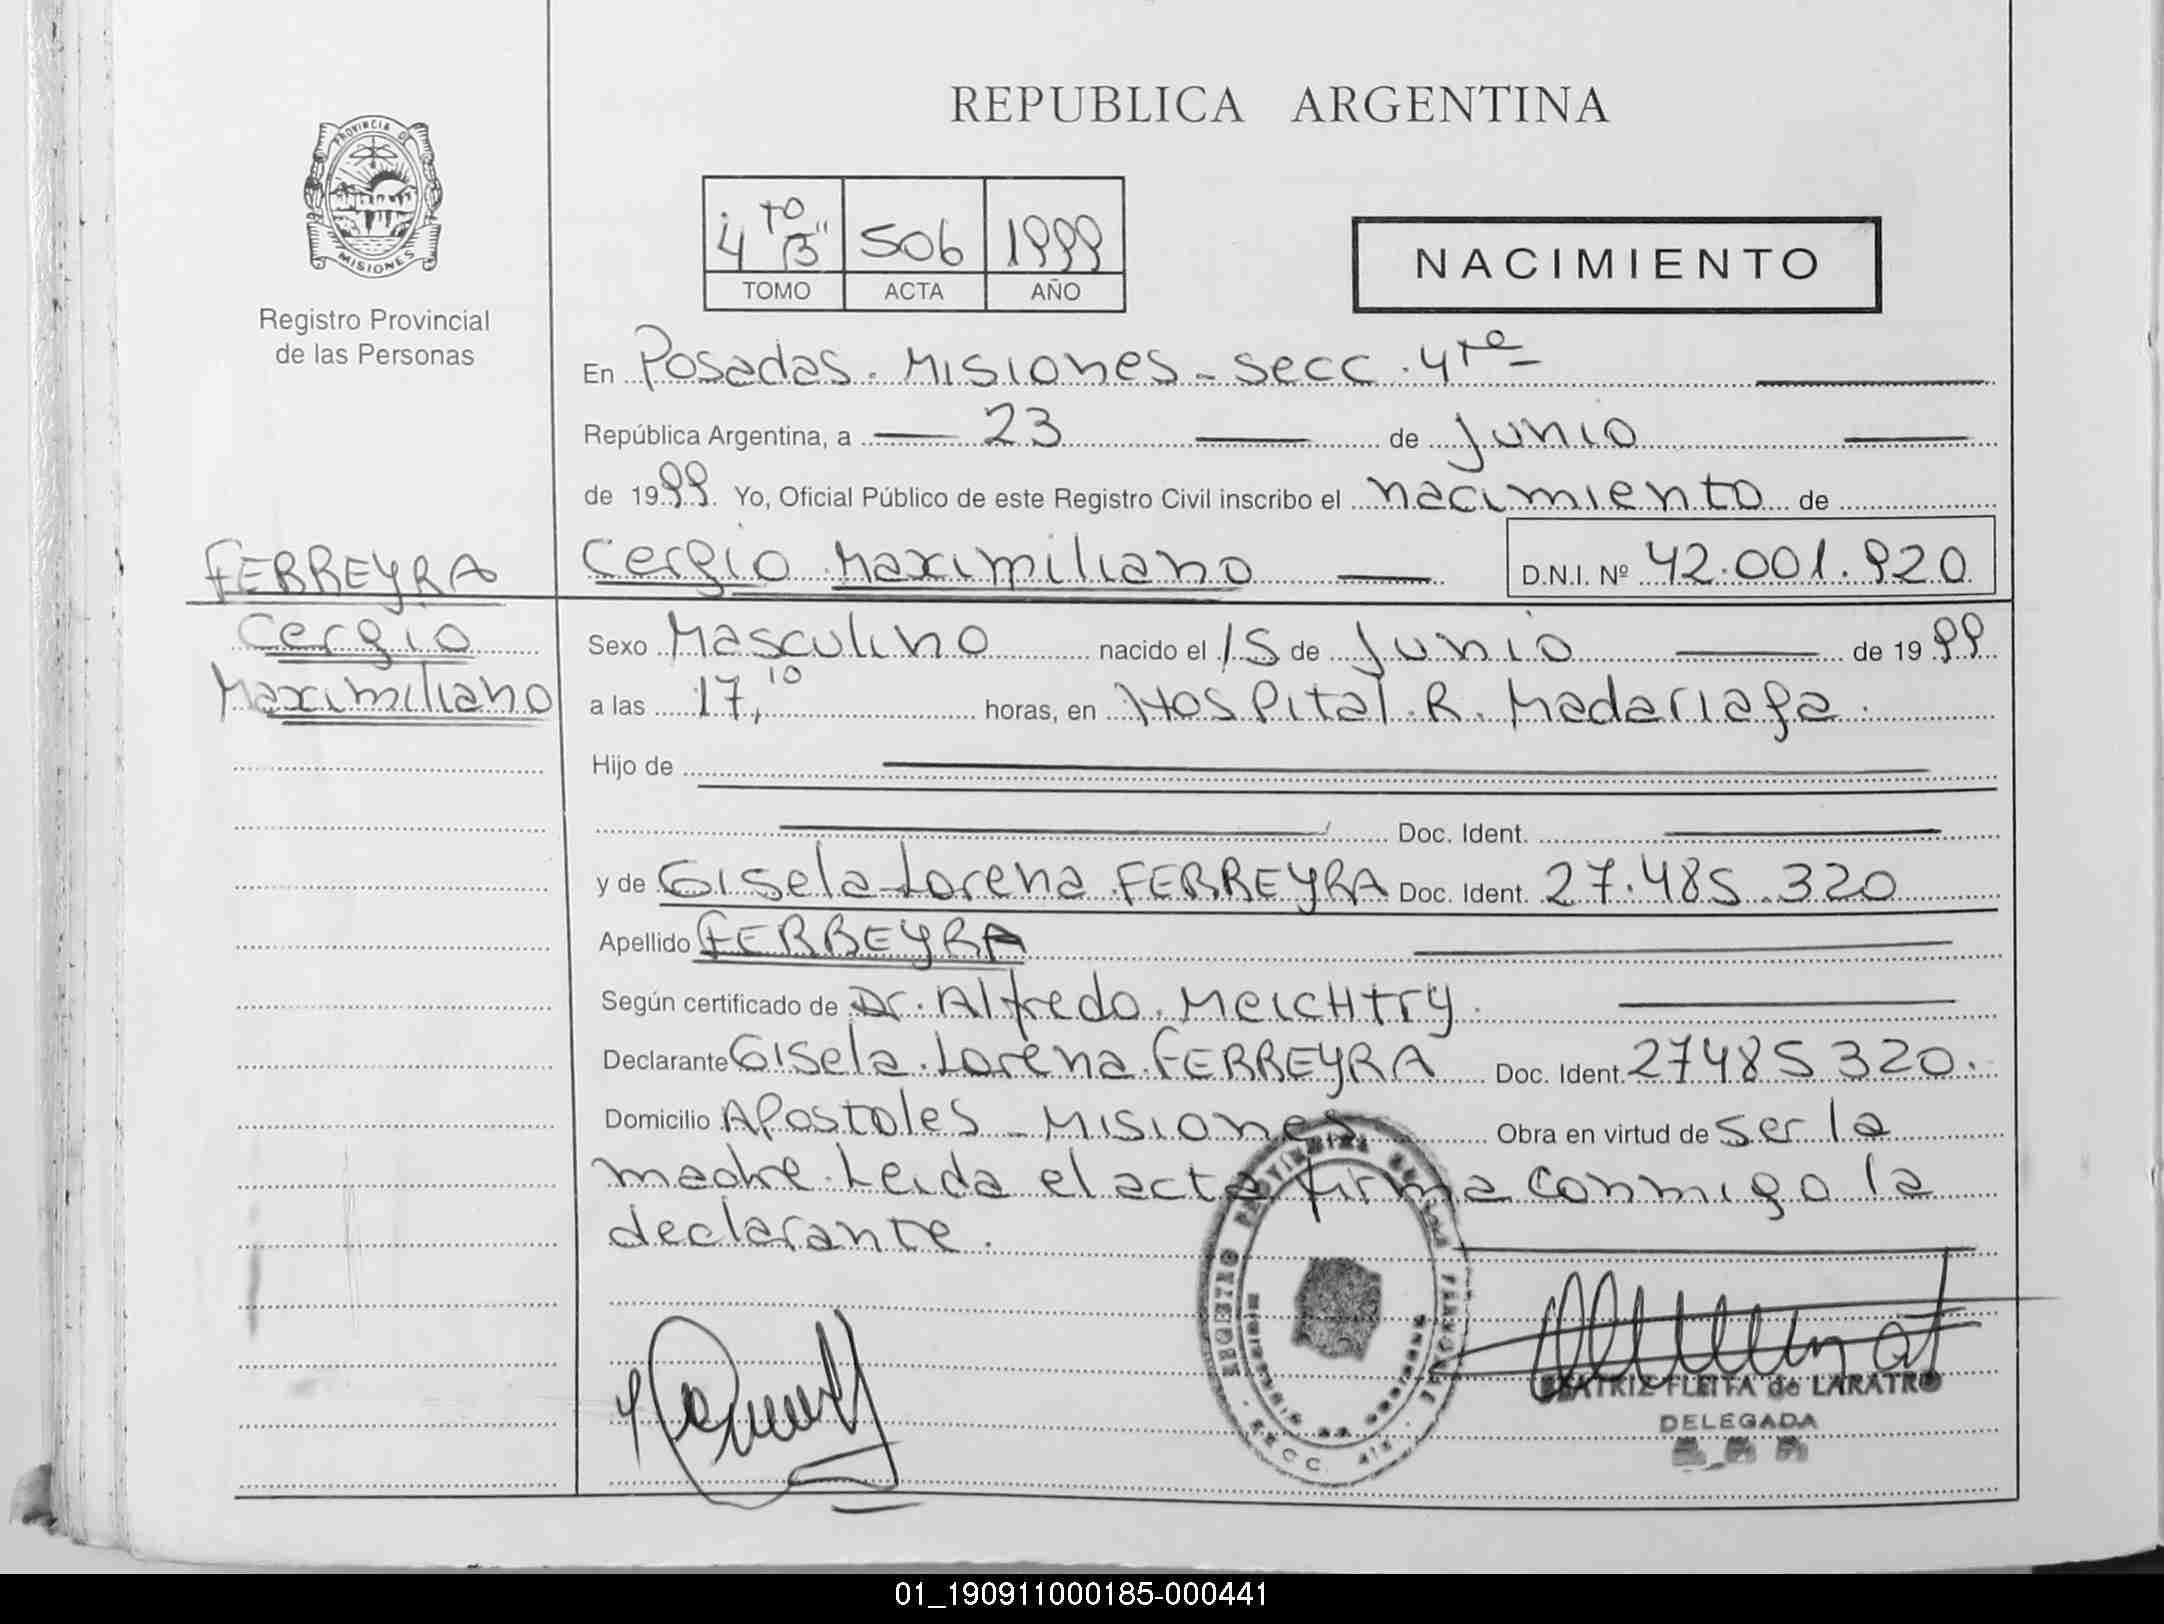 REPUBLICA ARGENTINA
PROVINCIA DE
MISIONES
Registro Provincial
de las Personas
4to "B" 506 1999
TOMO ACTA AÑO
NACIMIENTO
En Posadas. Misiones - secc. 4ta
República Argentina, a 23 de Junio
de 1999. Yo, Oficial Público de este Registro Civil inscribo el nacimiento de
Cergio Maximiliano D.N.I. Nº 42.001.920
FERREYRA
Cergio
Maximiliano
Sexo Masculino nacido el 15 de Junio de 1999
a las 17,10 horas, en Hospital R. Madariaga.
Hijo de
Doc. Ident.
y de Gisela Lorena FERREYRA Doc. Ident. 27.485.320
Apellido FERREYRA
Según certificado de Dr. Alfredo Meichtry.
Declarante Gisela Lorena FERREYRA Doc. Ident. 27485320.
Domicilio Apostoles - Misiones Obra en virtud de ser la
madre. Leida el acta firma conmigo la
declarante.
REGISTRO PROVINCIAL
SECC. 4ta
BEATRIZ FLEITA de LARATRO
DELEGADA
01_190911000185-000441